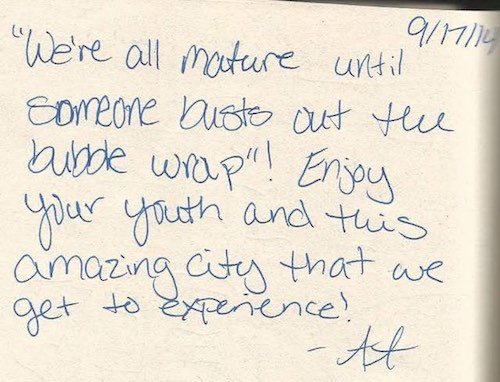 9/17/14
"We're all mature until
someone busts out the
bubble wrap"! Enjoy
your youth and this
amazing city that we
get to experience!